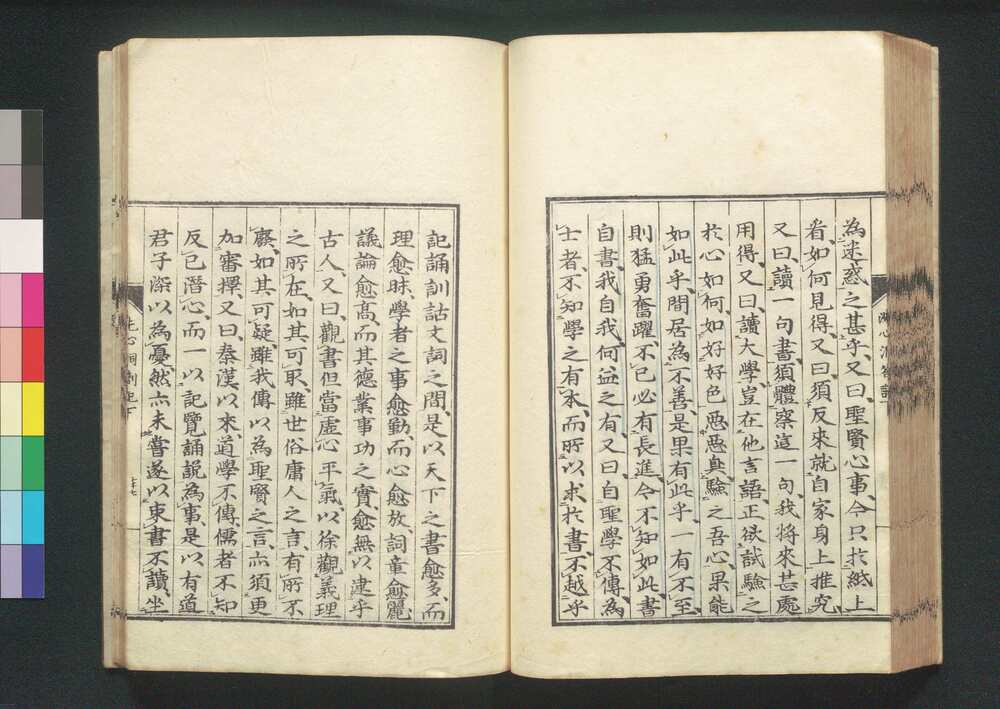 為迷惑之甚乎、又曰、聖賢心事、今只於紙上
看、如何見得、又曰、須反來就自家身上推究
又曰、讀一句書、須體察這一句、我將來甚處
用得、又曰、讀大學、豈在他言語、正欲試驗之
於心如何、如好好色、惡惡臭、驗之吾心、果能
如此乎、間居為不善、是果有此乎、一有不至
則猛勇奮躍不已、必有長進、今不知如此、書
自書、我自我、何益之有、又曰、自聖學不傳、為
士者、不知學之有本、而所以求於書、不越乎
記誦訓詁文詞之間、是以天下之書愈多、而
理愈昧、學者之事愈勤、而心愈放、詞章愈麗
議論愈高、而其德業事功之實、愈無以逮乎
古人、又曰、觀書但當虛心平氣、以徐觀義理
之所在、如其可取、雖世俗庸人之言、有所不
廢、如其可疑、雖我傳以為聖賢之言、亦須更
加審擇、又曰、秦漢以來、道學不傳、儒者不知
反己潛心、而一以記覽誦說為事、是以有道
君子深以為憂、然亦未嘗遂以束書不讀、坐